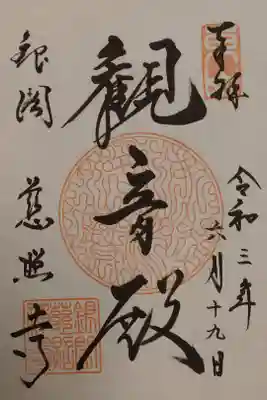 奉拝
令和三年
六月十九日
觀音殿
銀閣
慈照寺